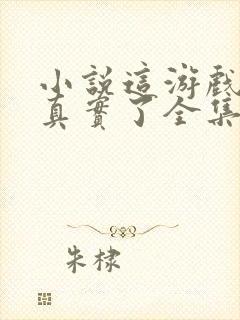 小説這游戲
真實了全集
朱棣